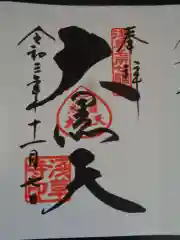 奉拝
大黒天
令和三年十一月七日
浅草寺印